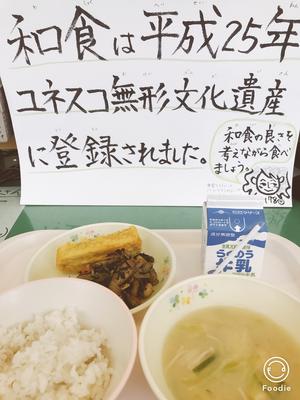 和食は平成25年
ユネスコ無形文化遺産
に登録されました。
和食の良さを
考えながら食べ
ましょう。
牛乳
Foodie